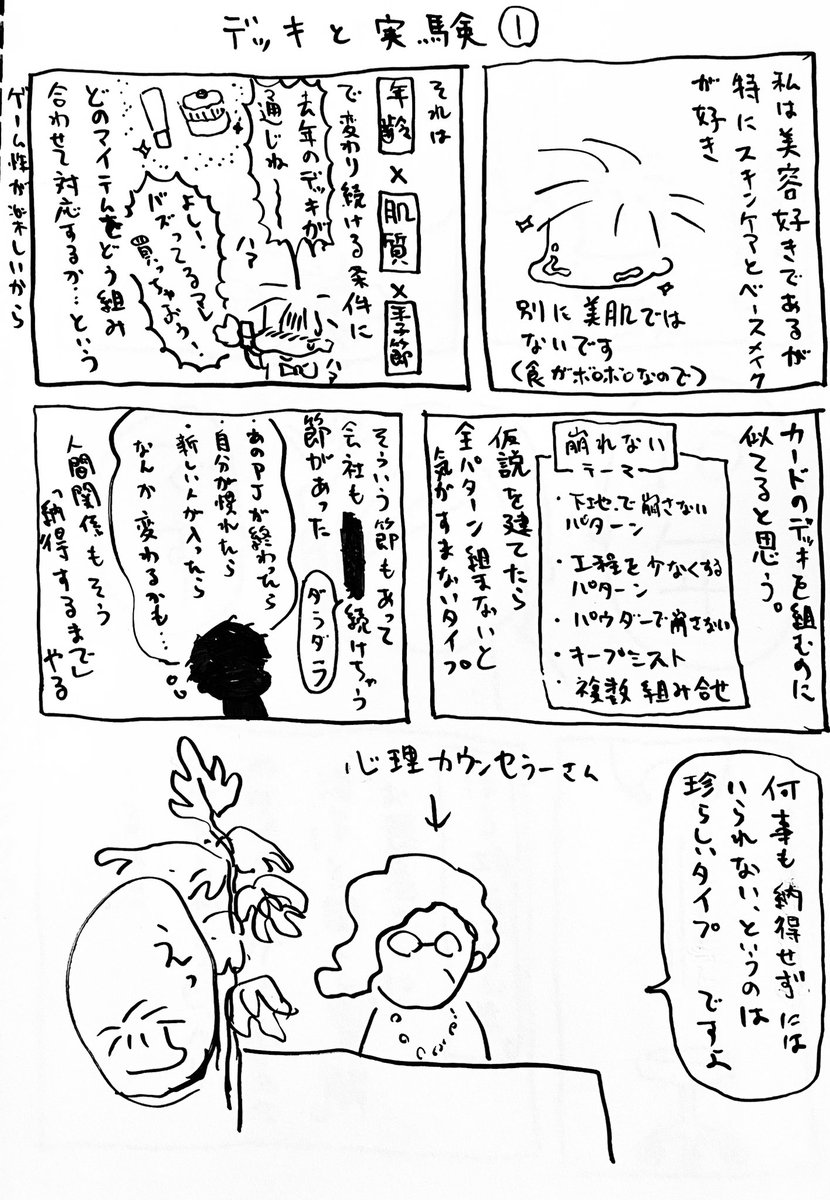 デッキと実験①
私は美容好きであるが
特にスキンケアとベースメイク
が好き
別に美肌では
ないです
(食がボロボロなので)
それは
年齢×肌質×季節
で変わり続ける条件に
去年のデッキが
通じねーー
ハァ
ハァ
よし!
バズってるアレ
買っちゃおう!
どのマイテムをどう組み
合わせて対応するか…という
ゲーム性が楽しいから
カードのデッキを組むのに
似てると思う。
崩れない
テーマ
・下地で崩さない
パターン
・工程を少なくする
パターン
・パウダーで崩さない
・キープミスト
・複数組み合せ
仮説を建てたら
全パターン組まないと
気がすまないタイプ
そういう節もあって
会社も
続けちゃう
節があった
ダラダラ
・あのPJが終わったら
・自分が慣れたら
・新しい人が入ったら
なんか変わるかも…
人間関係もそう
「納得するまで」やる
何事も納得せずには
いられない、というのは
珍らしいタイプ ですよ
心理カウンセラーさん
えっ